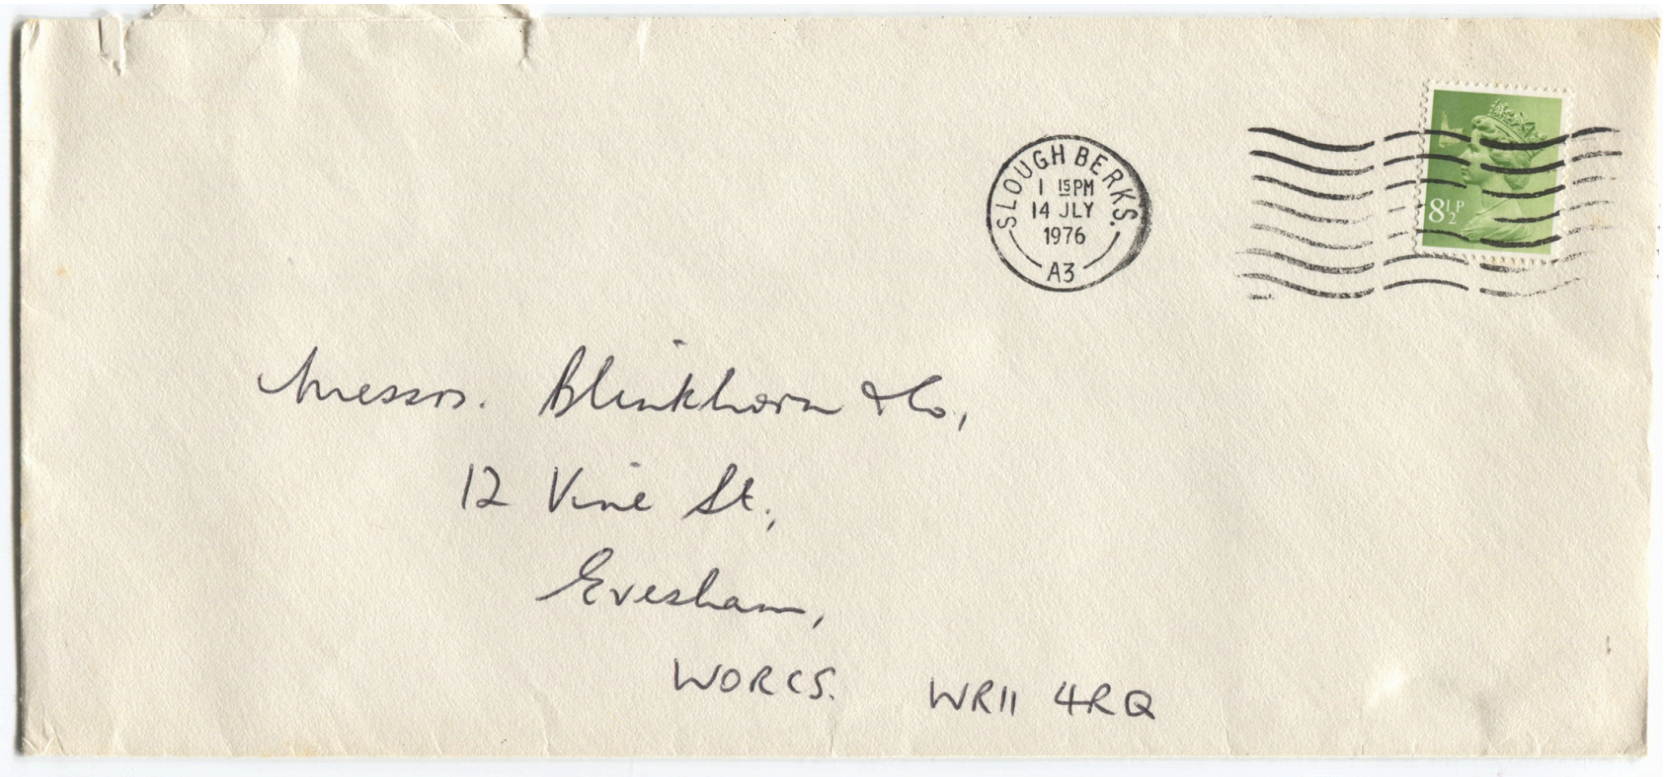 SLOUGH BERKS.
1 15 PM
14 JLY
1976
A3
8½P
Messrs. Blinkhorn & Co,
12 Vine St.,
Evesham,
WORCS. WR11 4RQ